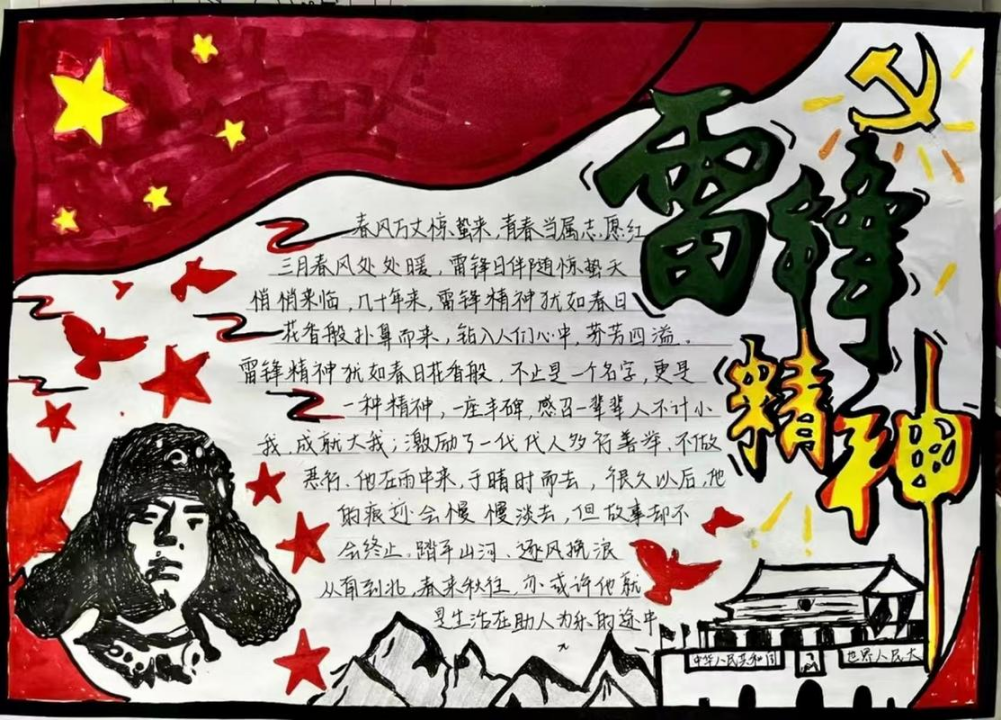 雷锋
精神
春风万丈惊蛰来,青春当属志愿红
三月春风处处暖,雷锋日伴随惊蛰天
悄悄来临,几十年来,雷锋精神犹如春日
花香般扑鼻而来,钻入人们心中,芬芳四溢。
雷锋精神犹如春日花香般,不止是一个名字,更是
一种精神,一座丰碑,感召一辈辈人不计小
我,成就大我;激励了一代代人多行善举、不做
恶行、他在雨中来,于晴时而去,很久以后,他
的痕迹会慢慢淡去,但故事却不
会终止,踏平山河、逐风挽浪
从南到北,春来秋往,亦或许他就
是生活在助人为乐的途中
中华人民共和国
世界人民大